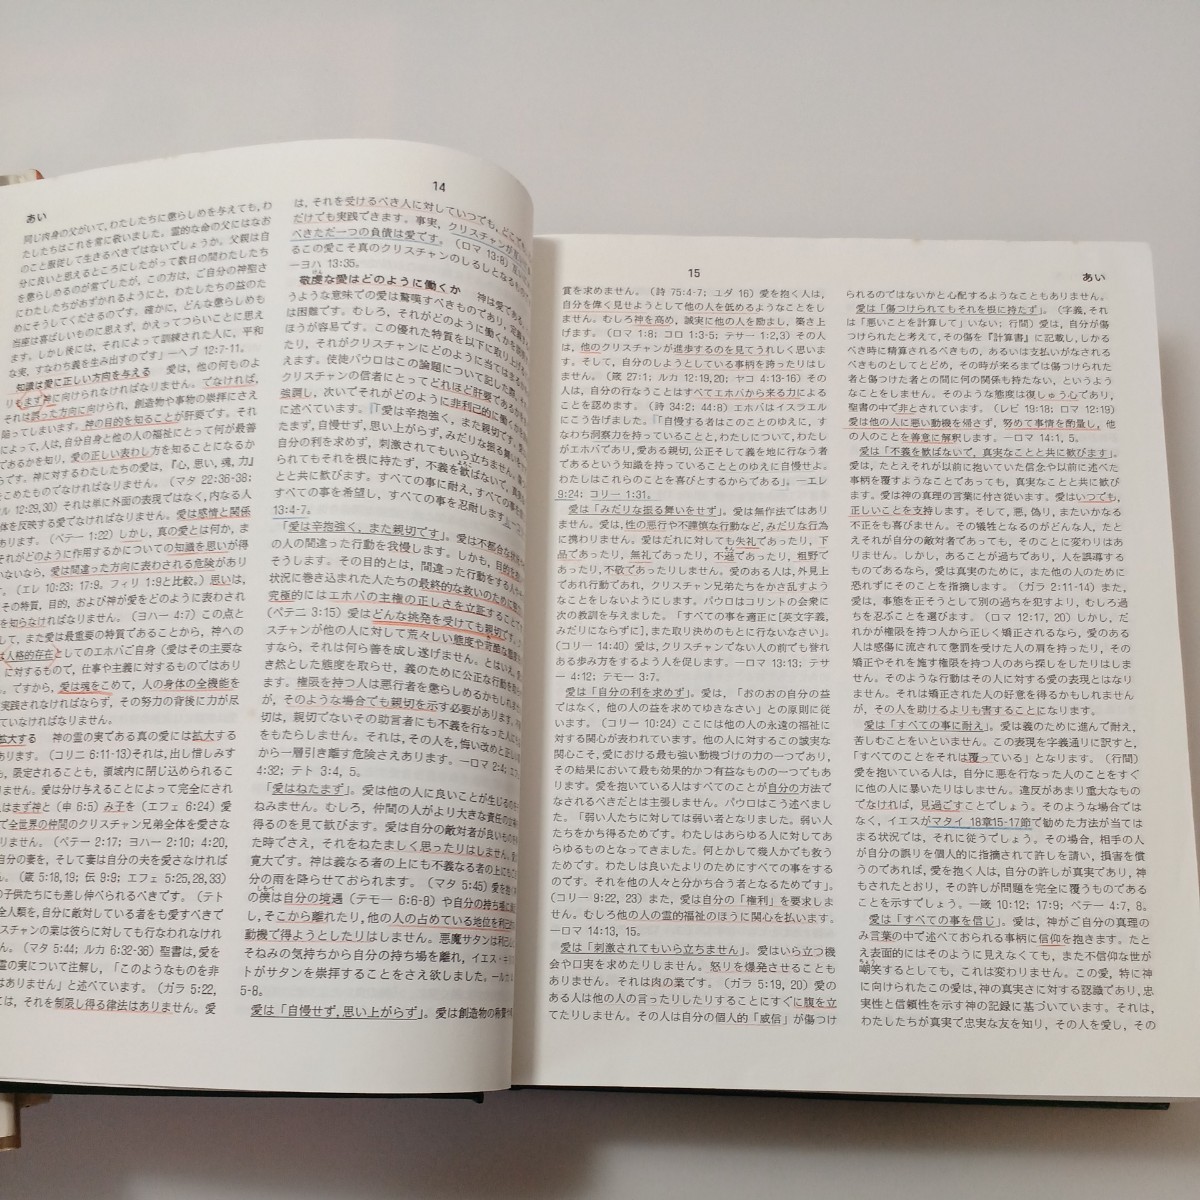 あい
14
同じ肉身の父がいて,わたしたちに懲らしめを与えても,わ
たしたちはこれを常に敬いました。霊的な命の父にはなお
のこと服従して生きるべきではないでしょうか。父親は自
分に良いと思えるところにしたがって数日の間わたしたち
を懲らしめるのが常でしたが,この方は,ご自分の神聖さ
にわたしたちがあずかれるようにと,わたしたちの益のた
めにそうしてくださるのです。確かに,どんな懲らしめも
当座は喜ばしいものに思えず,かえってつらいことに思え
ます。しかし後には,それによって訓練された人に,平和
な実,すなわち義を生み出すのです」―ヘブ 12:7-11。
知識は愛に正しい方向を与える 愛は,他の何ものよ
りもまず神に向けられなければなりません。でなければ,
それは誤った方向に向けられ,創造物や事物の崇拝にさえ
陥ってしまいます。神の目的を知ることが肝要です。それ
によって,人は,自分自身と他の人の福祉にとって何が最善
であるかを知り,愛の正しい表わし方を知ることになるか
らです。神に対するわたしたちの愛は,『心,思い,魂,力』
をこめたものでなければなりません。(マタ 22:36-38;
12:29,30)それは単に外面の表現ではなく,内なる人
体を反映する愛でなければなりません。愛は感情と関係
あります。(ペテ一 1:22)しかし,真の愛とは何か,ま
それがどのように作用するかについての知識を思いが得
いないなら,愛は間違った方向に表わされる危険があり
す。(エレ 10:23; 17:9。フィリ 1:9と比較。)思いは,
その特質,目的,および神が愛をどのように表わされ
を知らなければなりません。(ヨハ一 4:7)この点と
して,また愛は最重要の特質であることから,神への
は人格的存在としてのエホバご自身(愛はその主要な
に対するもので,仕事や主義に対するものではあり
ん。ですから,愛は魂をこめて,人の身体の全機能を
実践されなければならず,その努力の背後に力が尽
ていなければなりません。
拡大する 神の霊の実である真の愛には拡大する
あります。(コリ二 6:11-13)それは,出し惜しみす
も,限定されることも,領域内に閉じ込められるこ
ません。愛は分け与えることによって完全にされ
人はまず神と(申 6:5)み子を(エフェ 6:24)愛
で全世界の仲間のクリスチャン兄弟全体を愛さな
りません。(ペテ一 2:17; ヨハ一 2:10; 4:20,
自分の妻を,そして妻は自分の夫を愛さなければ
ん。(箴 5:18,19; 伝 9:9; エフェ 5:25,28,33)
の子供たちにも差し伸べられるべきです。(テト
全人類を,自分に敵対している者をも愛すべきで
チャンの業は彼らに対しても行なわれなけれ
ん。(マタ 5:44; ルカ 6:32-36)聖書は,愛を
霊の実について注解し,「このようなものを非
はありません」と述べています。(ガラ 5:22,
には,それを制限し得る律法はありません。愛
は,それを受けるべき人に対していつでも,どこででも,
だけでも実践できます。事実,クリスチャンが
べきただ一つの負債は愛です。(ロマ 13:8)
るこの愛こそ真のクリスチャンのしるしとなるもの
―ヨハ 13:35。
敬虔な愛はどのように働くか 神は愛である,
うような意味での愛は驚嘆すべきものであり,定義
は困難です。むしろ,それがどのように働くかを説明
ほうが容易です。この優れた特質を以下に取り上げ,
たり,それがクリスチャンにどのように当てはまるか
ます。使徒パウロはこの論題について記した際,
クリスチャンの信者にとってどれほど肝要であるか
強調し,次いでそれがどのように非利己的に働くかを
に述べています。「愛は辛抱強く,また親切です。愛は
たまず,自慢せず,思い上がらず,みだりな振る舞いを
自分の利を求めず,刺激されてもいら立ちません。傷つ
けられてもそれを根に持たず,不義を歓ばないで,真実
とと共に歓びます。すべての事に耐え,すべての事を
すべての事を希望し,すべての事を忍耐します」
13:4-7。
「愛は辛抱強く,また親切です」。愛は不都合な
の人の間違った行動を我慢します。しかも,目的を
そうします。その目的とは,間違った行動をする人
状況に巻き込まれた人たちの最終的な救いのために
究極的にはエホバの主権の正しさを立証すること
(ペテ二 3:15)愛はどんな挑発を受けても親切です。
スチャンが他の人に対して荒々しい態度や苛酷な態度
すなら,それは何ら善を成し遂げません。とはいえ,
き然とした態度を取らせ,義のために公正な行動を取ら
ます。権限を持つ人は悪行者を懲らしめるかもしれま
が,そのような場合でも親切を示す必要があります。
切は,親切でないその助言者にも不義を行なった人にも
をもたらしません。それは,その人を,悔い改めと正しい
から一層引き離す危険さえあります。―ロマ 2:4;
4:32; テト 3:4, 5。
「愛はねたまず」。愛は他の人に良いことが生じるのを
ねみません。むしろ,仲間の人がより大きな責任の立場
得るのを見て歓びます。愛は自分の敵対者が良いものを
た時でさえ,それをねたましく思ったりはしません。愛は
寛大です。神は義なる者の上にも不義なる者の上にもご自
分の雨を降らせておられます。(マタ 5:45)愛を抱く
の僕は自分の境遇(テモ一 6:6-8)や自分の持ち場に
し,そこから離れたり,他の人の占めている地位を利己的な
動機で得ようとしたりはしません。悪魔サタンは利己心と
そねみの気持ちから自分の持ち場を離れ,イエス・キリス
トがサタンを崇拝することをさえ欲しました。―ルカ 4:
5-8。
愛は「自慢せず,思い上がらず」。愛は創造物の称賛や
15
あい
賞を求めません。(詩 75:4-7; ユダ 16)愛を抱く人は,
自分を偉く見せようとして他の人を低めるようなことをしま
せん。むしろ神を高め,誠実に他の人を励まし,築き上
げます。(ロマ 1:8; コロ 1:3-5; テサ一 1:2,3)その人
は,他のクリスチャンが進歩するのを見てうれしく思いま
す。そして,自分のしようとしている事柄を誇ったりはし
ません。(箴 27:1; ルカ 12:19,20; ヤコ 4:13-16)その
人は,自分の行なうことはすべてエホバから来る力による
ことを認めます。(詩 34:2; 44:8)エホバはイスラエル
にこう告げました。「『自慢する者はこのことのゆえに,す
なわち洞察力を持っていることと,わたしについて,わたし
がエホバであり,愛ある親切,公正そして義を地に行なう者
であるという知識を持っていることとのゆえに自慢せよ。
わたしはこれらのことを喜びとするからである』」。―エレ
9:24; コリ一 1:31。
愛は「みだりな振る舞いをせず」。愛は無作法ではあり
ません。愛は,性の悪行や不謹慎な行動など,みだりな行為
に携わりません。愛はだれに対しても失礼であったり,下
品であったり,無礼であったり,不遜であったり,粗野で
あったり,不敬であったりしません。愛のある人は,外見上
であれ行動であれ,クリスチャン兄弟たちをかき乱すよう
なことをしないようにします。パウロはコリントの会衆に
次の教訓を与えました。「すべての事を適正に[英文字義,
みだりにならずに],また取り決めのもとに行ないなさい」。
(コリ一 14:40)愛は,クリスチャンでない人の前でも誉れ
ある歩み方をするよう人を促します。―ロマ 13:13; テサ
一 4:12; テモ一 3:7。
愛は「自分の利を求めず」。愛は,「おのおの自分の益
ではなく,他の人の益を求めてゆきなさい」との原則に従
います。(コリ一 10:24)ここには他の人の永遠の福祉に
対する関心が表われています。他の人に対するこの誠実な
関心こそ,愛における最も強い動機づけの力の一つであり,
その結果において最も効果的かつ有益なものの一つでもあり
ます。愛を抱いている人はすべてのことが自分の方法で
なされるべきだとは主張しません。パウロはこう述べまし
た。「弱い人たちに対しては弱い者となりました。弱い人
たちをかち得るためです。わたしはあらゆる人に対してあ
らゆるものとなってきました。何とかして幾人かでも救う
ためです。わたしは良いたよりのためにすべての事をする
のです。それを他の人々と分かち合う者となるためです」。
(コリ一 9:22, 23)また,愛は自分の「権利」を要求しま
せん。むしろ他の人の霊的福祉のほうに関心を払います。
―ロマ 14:13, 15。
愛は「刺激されてもいら立ちません」。愛はいら立つ機
会や口実を求めたりしません。怒りを爆発させることも
ありません。それは肉の業です。(ガラ 5:19, 20)愛の
ある人は他の人の言ったりしたりすることにすぐに腹を立
てたりしません。その人は自分の個人的「威信」が傷つけ
られるのではないかと心配するようなこともありません。
愛は「傷つけられてもそれを根に持たず」。(字義,それ
は「悪いことを計算して」いない; 行間)愛は,自分が傷
つけられたと考えて,その傷を『計算書』に記載し,しかる
べき時に精算されるべきもの,あるいは支払いがなされる
べきものとしてとどめ,その時が来るまでは傷つけられた
者と傷つけた者との間に何の関係も持たない,というよう
なことをしません。そのような態度は復しゅう心であり,
聖書の中で非とされています。(レビ 19:18; ロマ 12:19)
愛は他の人に悪い動機を帰さず,努めて事情を酌量し,他
の人のことを善意に解釈します。―ロマ 14:1, 5。
愛は「不義を歓ばないで,真実なことと共に歓びます」。
愛は,たとえそれが以前に抱いていた信念や以前に述べた
事柄を覆すようなことであっても,真実なことと共に歓び
ます。愛は神の真理の言葉に付き従います。愛はいつでも,
正しいことを支持します。そして,悪,偽り,またいかなる
不正をも喜びません。その犠牲となるのがどんな人,たと
えそれが自分の敵対者であっても,そのことに変わりはあ
りません。しかし,あることが過ちであり,人を誤導する
ものであるなら,愛は真実のために,また他の人のために
恐れずにそのことを指摘します。(ガラ 2:11-14)また,
愛は,事態を正そうとして別の過ちを犯すより,むしろ過
ちを忍ぶことを選びます。(ロマ 12:17, 20)しかし,だ
れかが権限を持つ人から正しく矯正されるなら,愛のある
人は感情に流されて懲罰を受けた人の肩を持ったり,その
矯正やそれを施す権限を持つ人のあら探しをしたりはしま
せん。そのような行動はその人に対する愛の表現とはなり
ません。それは矯正された人の好意を得るかもしれません
が,その人を助けるよりも害することになります。
愛は「すべての事に耐え」。愛は義のために進んで耐え,
苦しむことをいといません。この表現を字義通りに訳すと,
「すべてのことをそれは覆っている」となります。(行間)
愛を抱いている人は,自分に悪を行なった人のことをすぐ
に他の人に暴いたりはしません。違反があまり重大なもの
でなければ,見過ごすことでしょう。そのような場合では
なく,イエスがマタイ 18章15-17節で勧めた方法が当ては
まる状況では,それに従うでしょう。その場合,相手の人
が自分の誤りを個人的に指摘されて許しを請い,損害を償
うのであれば,愛を抱く人は,自分の許しが真実であり,神
もされたとおり,その許しが問題を完全に覆うものである
ことを示すでしょう。―箴 10:12; 17:9; ペテ一 4:7, 8。
愛は「すべての事を信じ」。愛は,神がご自分の真理の
み言葉の中で述べておられる事柄に信仰を抱きます。たと
え表面的にはそのように見えなくても,また不信仰な世が
嘲笑するとしても,これは変わりません。この愛,特に神
に向けられたこの愛は,神の真実さに対する認識であり,忠
実性と信頼性を示す神の記録に基づいています。それは,
わたしたちが真実で忠実な友を知り,その人を愛し,その